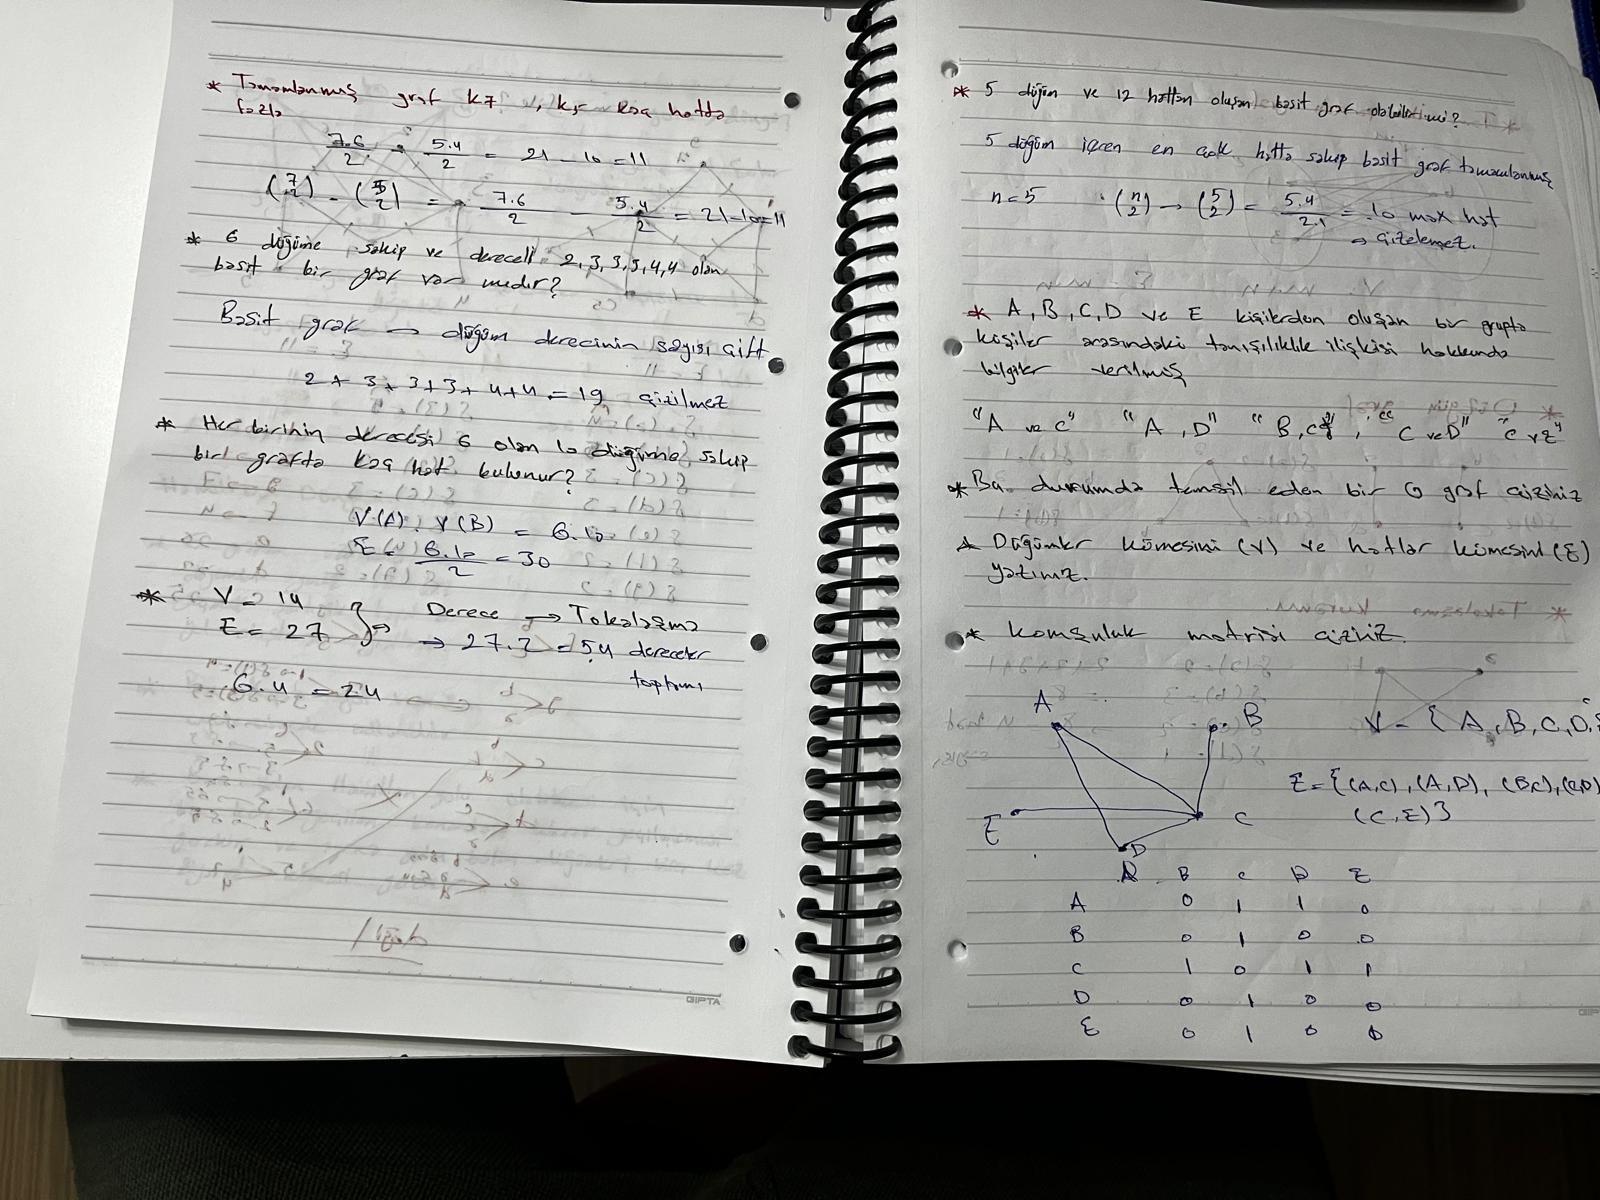 * Tamamlanmış graf K7, K5 kaç hatta
fazla
7.6/2 - 5.4/2 = 21 - 10 = 11
(7/2) - (5/2) = 7.6/2 - 5.4/2 = 21-10=11
* 6 düğüme sahip ve dereceli 2,3,3,3,4,4 olan
basit bir graf var mıdır?
Basit graf → düğüm derecinin sayısı çift
2 + 3 + 3 + 3 + 4 + 4 = 19 çizilmez
* Her birinin derecesi 6 olan 10 düğüme sahip
bir grafta kaç hat bulunur?
V(A) . V(B) = 6.10
E = 6.10/2 = 30
* V = 14
E = 27 } → Derece → Tokalaşma
→ 27.2 = 54 dereceler
toplamı
6.4 = 24
GIPTA
* 5 düğüm ve 12 hattan oluşan basit graf olabilir mi?
5 düğüm içeren en çok hatta sahip basit graf tamamlanmış
n=5 (n/2) → (5/2) = 5.4/2.1 = 10 max hat
→ çizelemez.
* A, B, C, D ve E kişilerden oluşan bir grupta
kişiler arasındaki tanışılıklık ilişkisi hakkında
bilgiler verilmiş
"A ve C" "A, D" "B, C", "C ve D" "C ve E"
* Bu durumda temsil eden bir G graf çiziniz
* Düğümler kümesini (V) ve hatlar kümesini (E)
yazınız.
* Komşuluk matrisi çiziniz.
A
B
V = { A, B, C, D,
E = {(A,C), (A,D), (B,C), (C,D)
(C,E)}
E
C
D
A B C D E
A 0 1 1 0
B 0 1 0 0
C 1 0 1 1
D 0 1 0 0
E 0 1 0 0